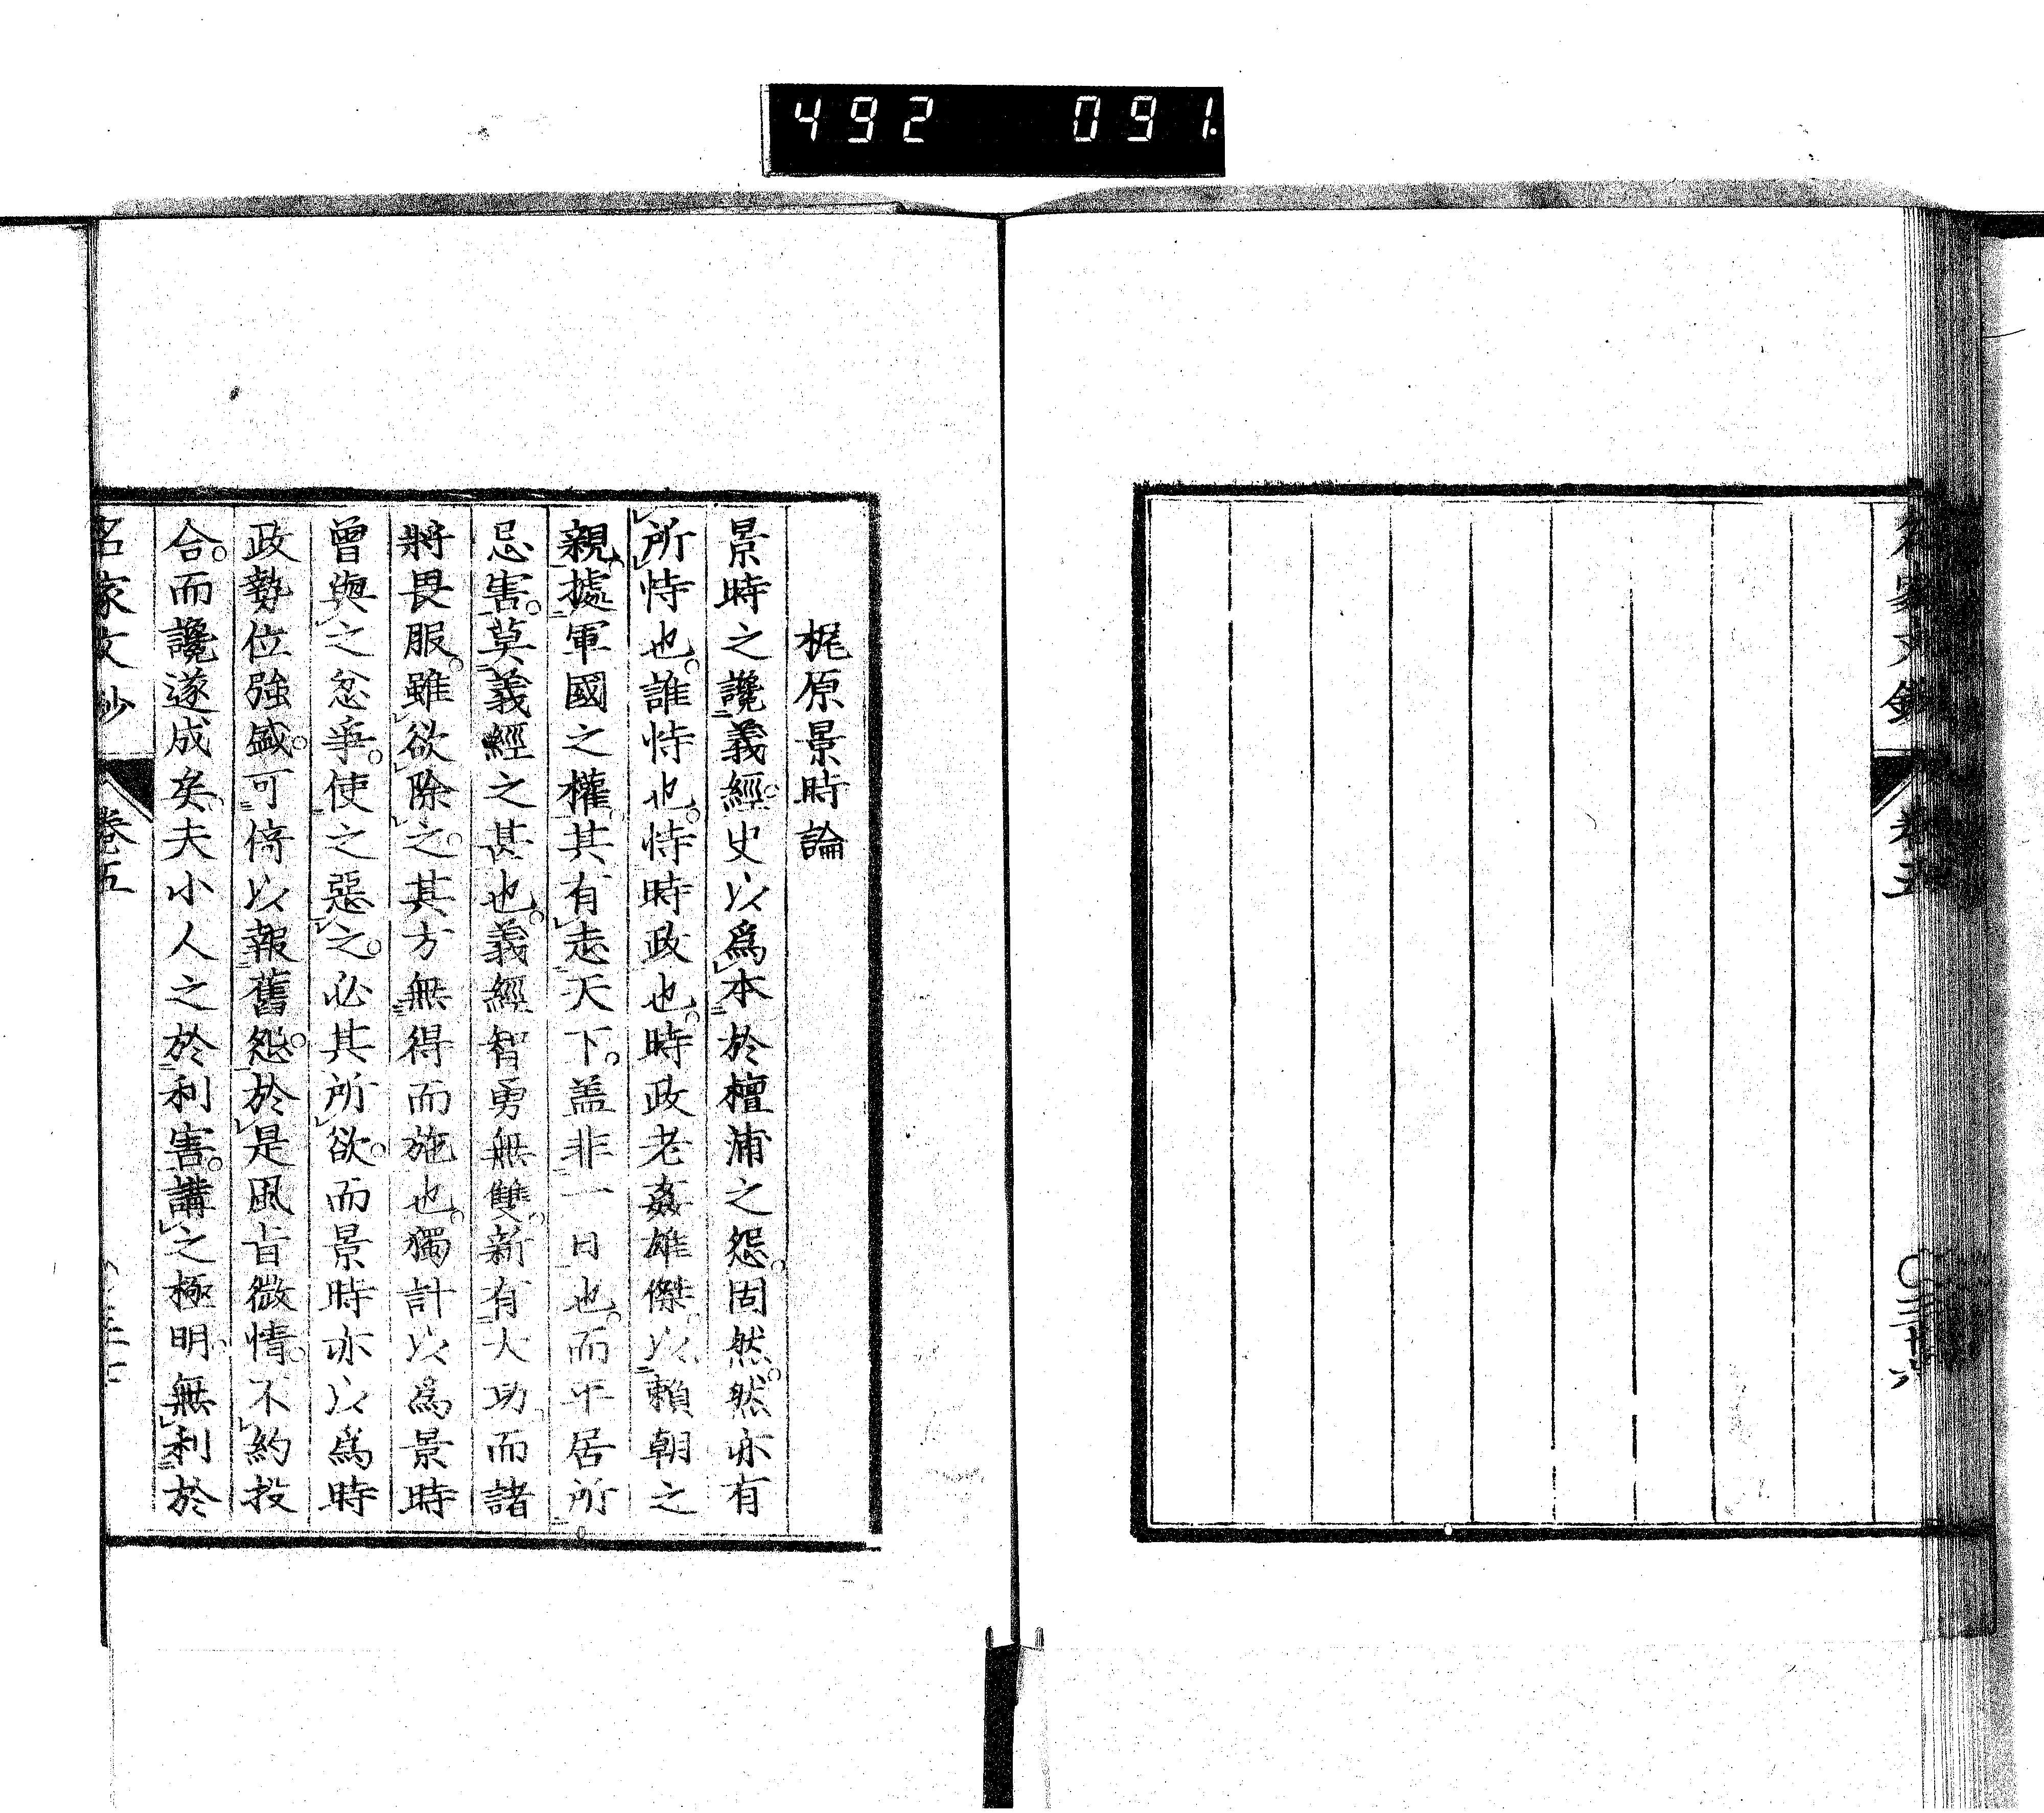 492 091.
卷五
梶原景時論
景時之讒義經史以爲本於檀浦之怨固然然亦有
所恃也誰恃也恃時政也時政老姦雄傑以賴朝之
親據軍國之權其有志天下盖非一日也而平居所
忌害莫義經之甚也義經智勇無雙新有大功而諸
將畏服雖欲除之其方無得而施也獨計以爲景時
曾與之忿爭使之惡之必其所欲而景時亦以爲時
政勢位強盛可倚以報舊怨於是風旨微情不約投
合而讒遂成矣夫小人之於利害講之極明無利於
名家文鈔 卷五